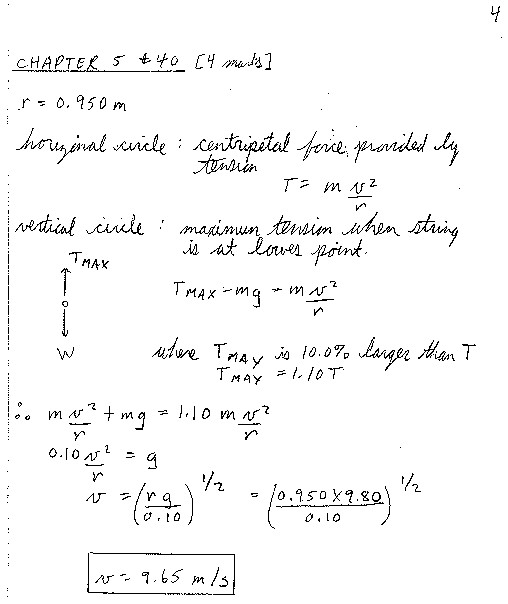 4
CHAPTER 5 #40 [4 marks]
r = 0.950 m
horizonal circle : centripetal force provided by
tension
T = m v²/r
vertical circle : maximum tension when string
is at lowes point.
T MAX
T MAX - mg = m v²/r
W
where T MAX is 10.0% larger than T
T MAX = 1.10 T
∴ m v²/r + mg = 1.10 m v²/r
0.10 v²/r = g
v = (r g / 0.10)^1/2 = (0.950 X 9.80 / 0.10)^1/2
v = 9.65 m/s